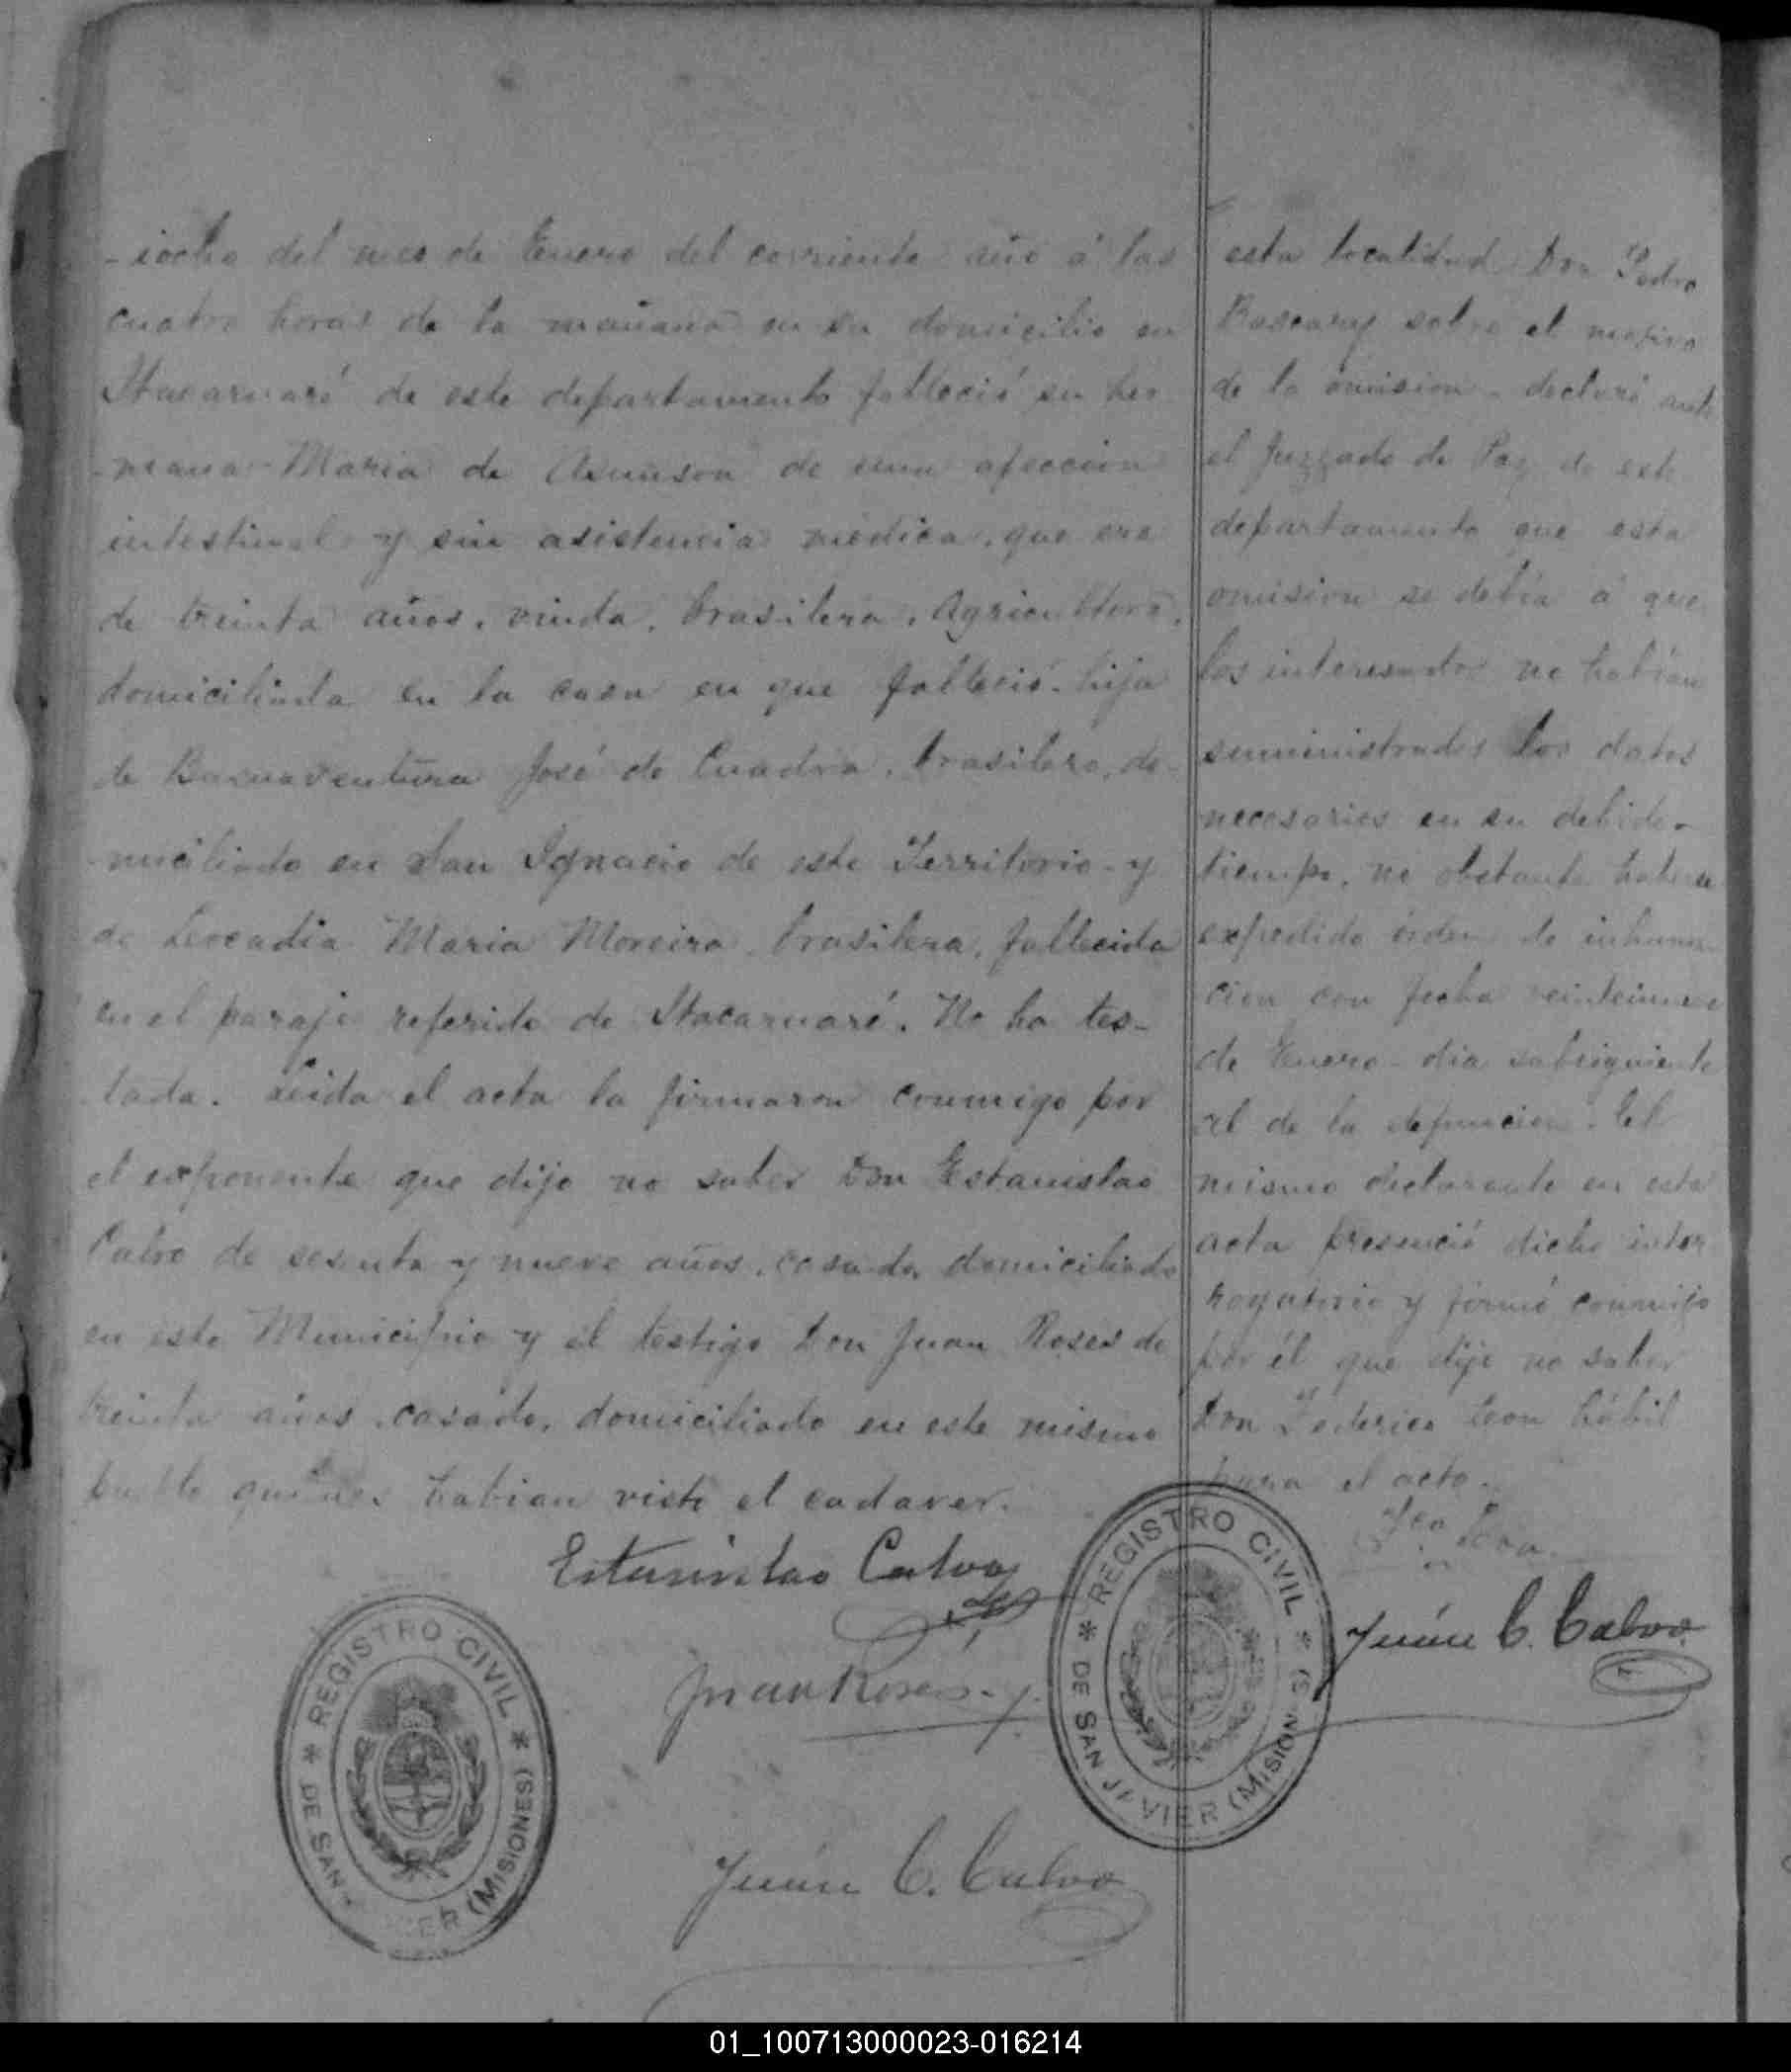 -iocho del mes de Enero del corriente año á las
cuatro horas de la mañana en su domicilio en
Itacaruaré de este departamento falleció su her
-mana Maria de de una afeccion
intestinal y sin asistencia medica, que era
de treinta años, viuda, brasilera, Agricultora,
domiciliada en la casa en que falleció, hija
de Buenaventura José de Cuadra, brasilero, do-
-miciliado en San Ignacio de este Territorio y
de Leocadia Maria Moreira brasilera, fallecida
en el paraje referido de Itacaruaré. No ha tes-
tado. Leida el acta la firmaron conmigo por
el exponente que dijo no saber Don Estanislao
Calvo de sesenta y nueve años, casado, domiciliado
en este Municipio y el testigo Don Juan Roses de
treinta años, casado, domiciliado en este mismo
pueblo quienes habian visto el cadaver.
Estanislao Calvo
Juan Roses
Juan C. Calvo
esta localidad Don Pedro
sobre el motivo
de la omision - declaró ante
el Juzgado de Paz de este
departamento que esta
omision se debia á que
los interesados no habian
suministrado los datos
necesarios en su debido
tiempo, no obstante haberse
expedido órden de inhuma-
cion con fecha
de Enero - dia subsiguiente
al de la defuncion. El
mismo declarante en esta
acta presenció dicho inter
rogatorio y firmó conmigo
por él que dijo no saber
Don Federico Leon hábil
para el acto.
Juan C. Calvo
* REGISTRO CIVIL *
DE SAN JAVIER (MISIONES)
* REGISTRO CIVIL *
DE SAN VIER (MISIONES)
01_100713000023-016214